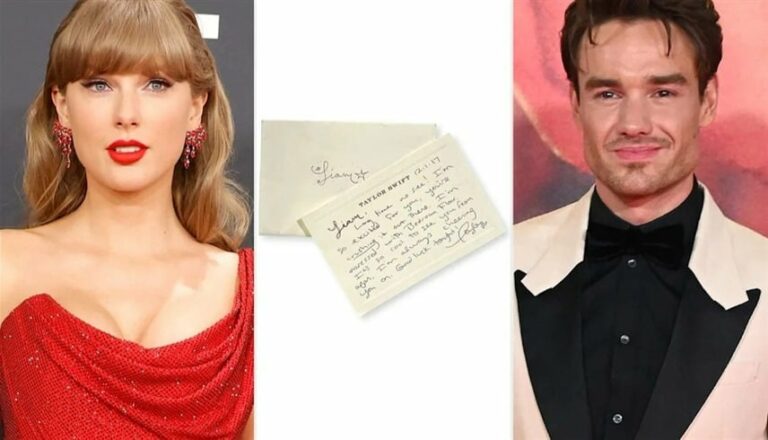 Liam
TAYLOR SWIFT 12.1.17
Liam,
Long time no see! I'm
so excited for you, you're
crushing it out there. I'm
obsessed with Bedroom Floor
It's so cool to see you
again. I'm always cheering
you on. Good luck tonight!
Taylor